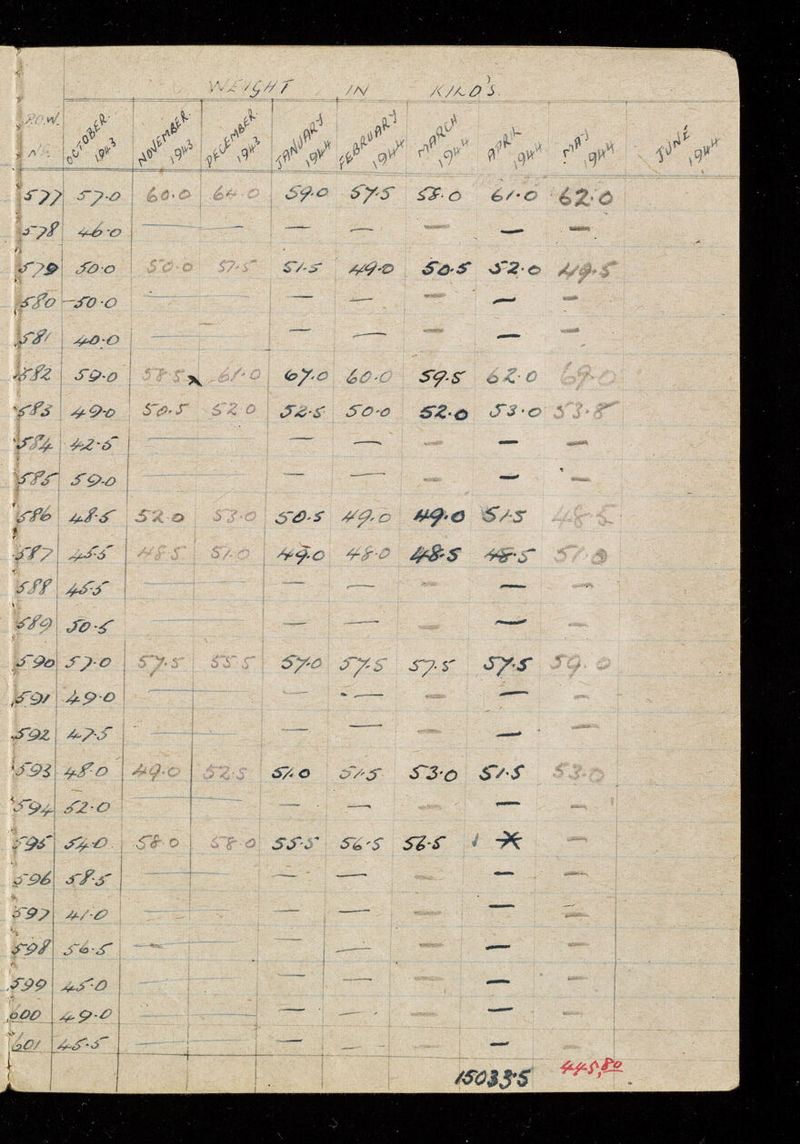 WEIGHT IN KILO'S
P.O.W. No. OCTOBER 1943 NOVEMBER 1943 DECEMBER 1943 JANUARY 1944 FEBRUARY 1944 MARCH 1944 APRIL 1944 MAY 1944 JUNE 1944
577 57.0 60.0 64.0 59.0 57.5 58.0 61.0 62.0
578 46.0 — — — — — — —
579 50.0 50.0 51.5 51.5 49.0 50.5 52.0 49.5
580 50.0 — — — — — — —
581 40.0 — — — — — — —
582 59.0 58.5 61.0 67.0 60.0 59.5 62.0 69.0
583 49.0 50.5 52.0 52.5 50.0 52.0 53.0 53.8
584 42.5 — — — — — — —
585 59.0 — — — — — — —
586 48.5 52.0 53.0 50.5 49.0 49.0 51.5 48.5
587 45.5 48.5 51.0 49.0 48.0 48.5 48.5 51.0
588 45.5 — — — — — — —
589 50.5 — — — — — — —
590 57.0 57.5 55.5 57.0 57.5 57.5 57.5 59.0
591 49.0 — — — — — — —
592 47.5 — — — — — — —
593 48.0 49.0 52.5 51.0 51.5 53.0 51.5 53.0
594 52.0 — — — — — — —
595 54.0 58.0 58.0 55.5 56.5 56.5 X —
596 58.5 — — — — — — —
597 41.0 — — — — — — —
598 56.5 — — — — — — —
599 45.0 — — — — — — —
600 49.0 — — — — — — —
601 45.5 — — — — — — —
15033.5 445,80